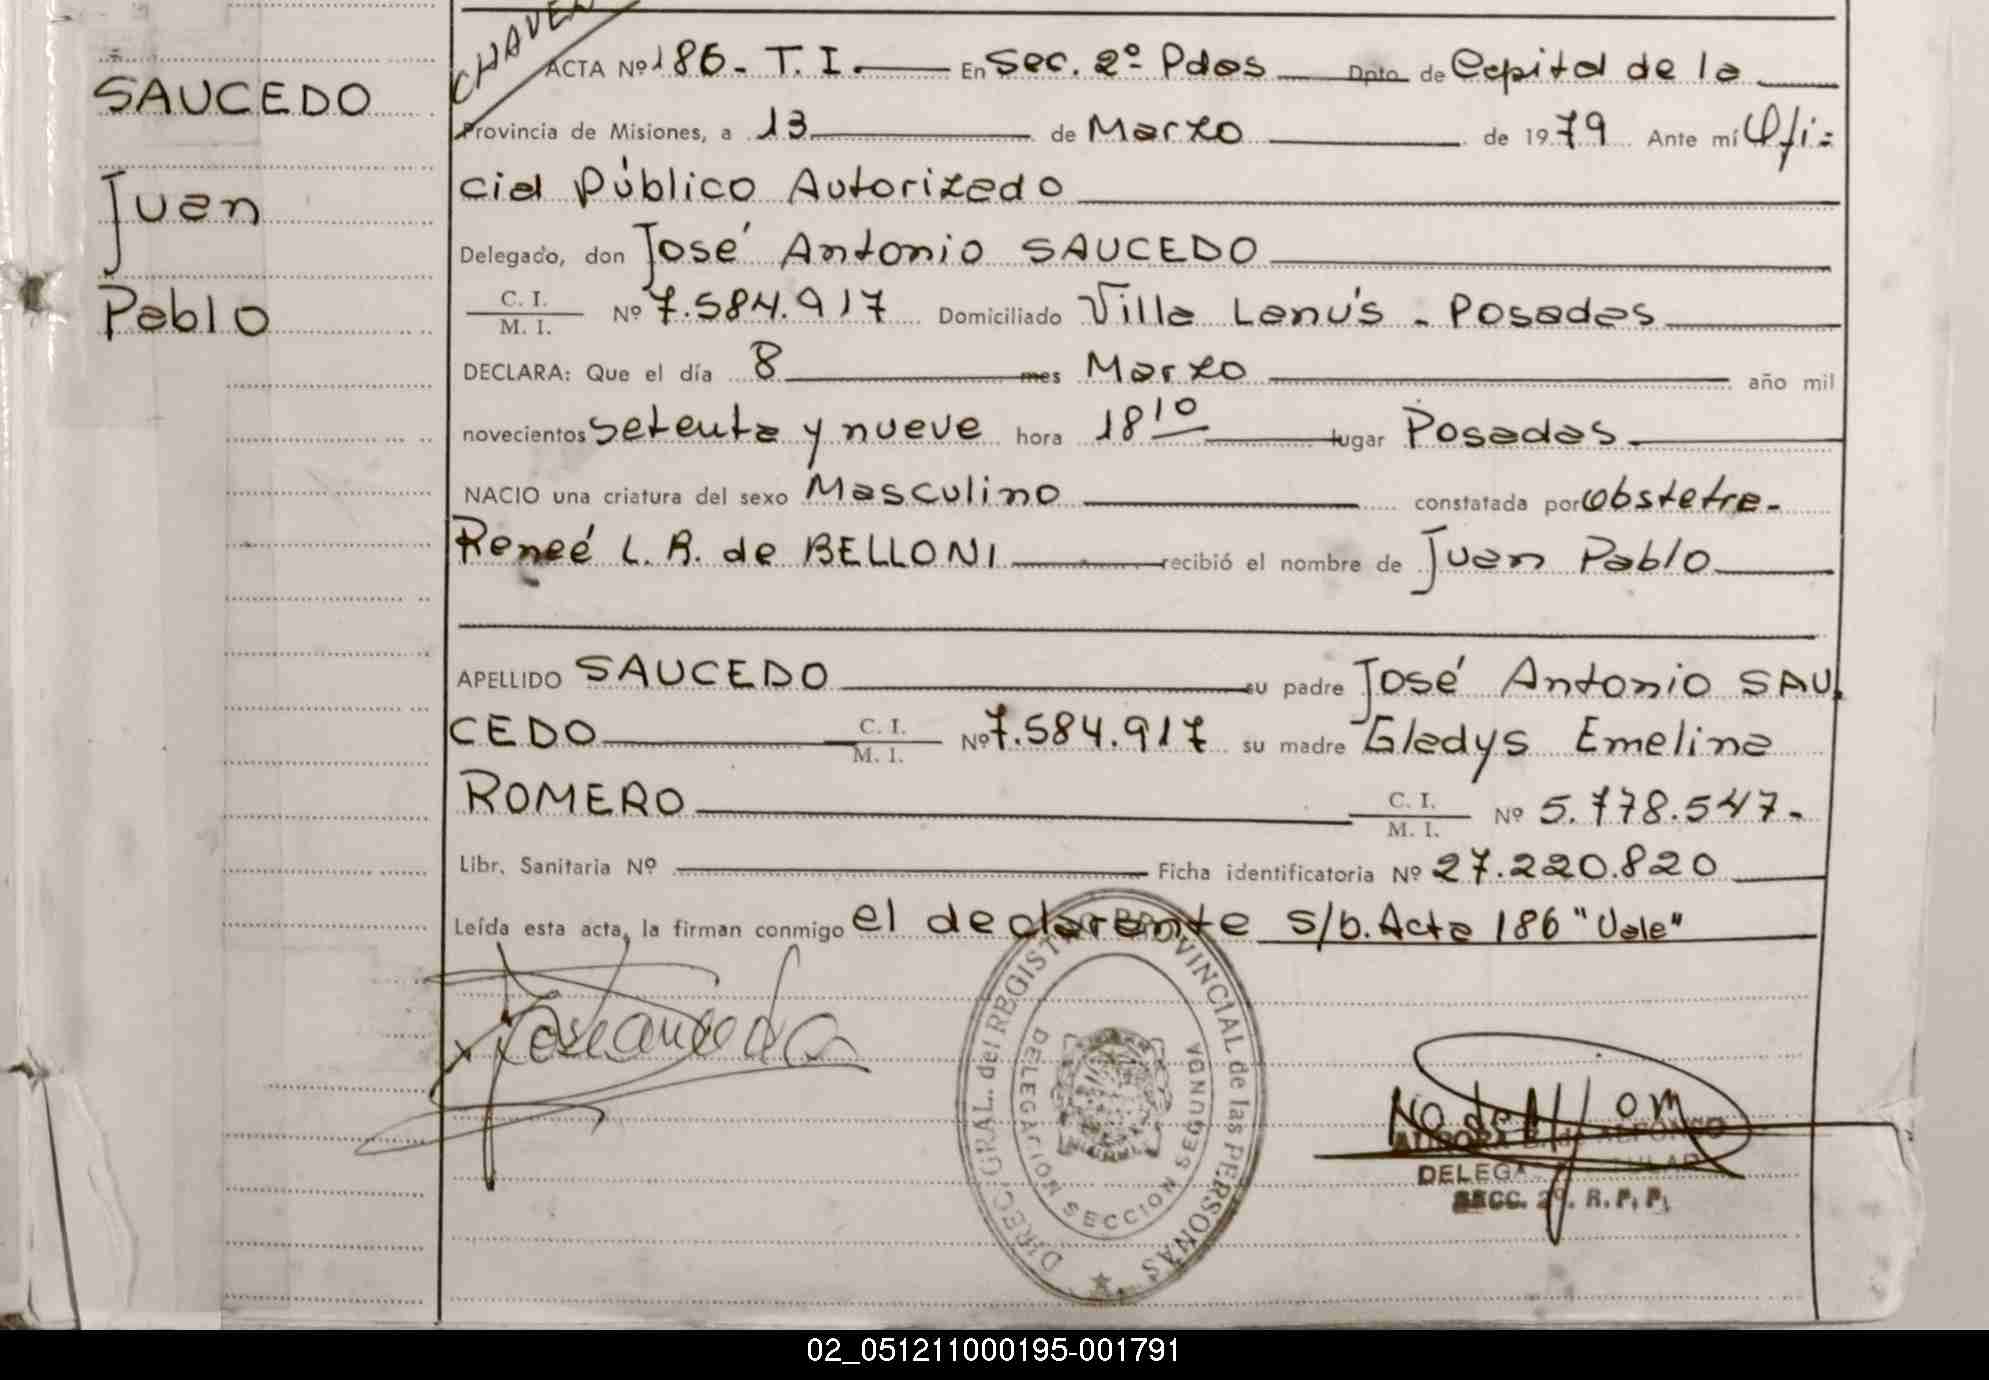 CHAVEZ
SAUCEDO
Juan
Pablo
ACTA Nº 186 - T. I. En Sec. 2º Pdas Dpto. de Capital de la
Provincia de Misiones, a 13 de Marzo de 1979 Ante mí Ofi-
cial Público Autorizado
Delegado, don José Antonio SAUCEDO
C. I.
M. I. Nº 7.584.917 Domiciliado Villa Lanús - Posadas
DECLARA: Que el día 8 mes Marzo año mil
novecientos setenta y nueve hora 18 10 lugar Posadas
NACIO una criatura del sexo Masculino constatada por obstetra-
Reneé L. R. de BELLONI recibió el nombre de Juan Pablo
APELLIDO SAUCEDO su padre José Antonio SAU
CEDO C. I. M. I. Nº 7.584.917 su madre Gladys Emelina
ROMERO C. I. M. I. Nº 5.778.547-
Libr. Sanitaria Nº Ficha identificatoria Nº 27.220.820
Leída esta acta, la firman conmigo el declarante s/b. Acta 186 "Vale"
DIREC. GRAL. del REGISTRO PROVINCIAL de las PERSONAS
DELEGACION SECCION SEGUNDA
AURORA ALFONSO
DELEGA TITULAR
SECC. 2º. R. P. P.
02_051211000195-001791